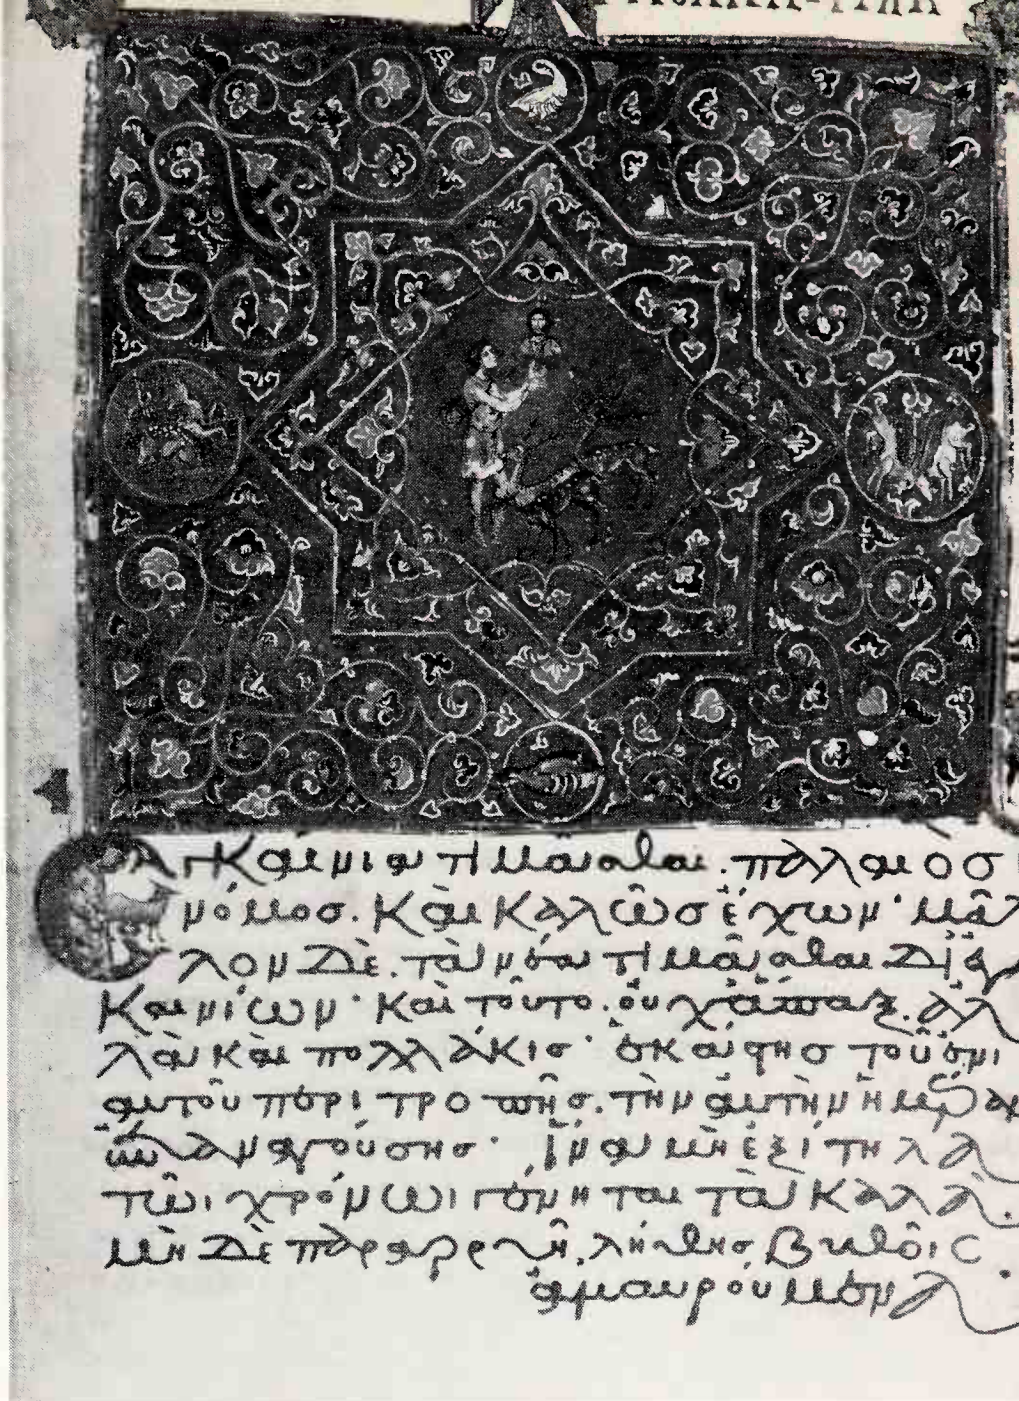 Ἐγκαίνια τιμᾶσθαι, παλαιὸς
νόμος· καὶ καλῶς ἔχων· μᾶλ
λον δὲ, τὰ νέα τιμᾶσθαι δι' ἐγ
καινίων· καὶ τοῦτο, οὐχ ἅπαξ, ἀλ
λὰ καὶ πολλάκις· ἑκάστης τοῦ ἐνι
αυτοῦ περιτροπῆς, τὴν αὐτὴν ἡμέραν
ἐπαναγούσης· ἵνα μὴ ἐξίτηλα
τῶι χρόνωι γένηται τὰ καλὰ.
μὴ δὲ παραρρυῆ, λήθης βυθοῖς
ἀμαυρούμενα.